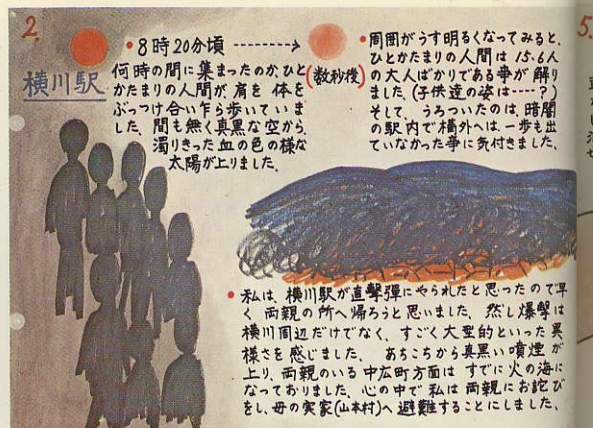 2.
横川駅
• 8時20分頃 --------→
(数秒後)
何時の間に集まったのか、ひと
かたまりの人間が肩を 体を
ぶっつけ合い乍ら歩いていま
した、間も無く真黒な空から、
濁りきった血の色の様な
太陽が上りました、
• 周囲がうす明るくなってみると、
ひとかたまりの人間は 15.6人
の大人ばかりである事が解り
ました、(子供達の姿は……?)
そして、うろついたのは、暗闇
の駅内で構外へは、一歩も出
ていなかった事に気付きました、
• 私は、横川駅が直撃弾にやられたと思ったので早
く、両親の所へ帰ろうと思いました、然し爆撃は
横川周辺だけでなく、すごく大型的といった異
様さを感じました、 あちこちから真黒い噴煙が
上り、両親のいる 中広町方面は すでに火の海に
なっておりました、心の中で 私は 両親にお詫び
をし、母の実家(山本村)へ 避難することにしました、
5.